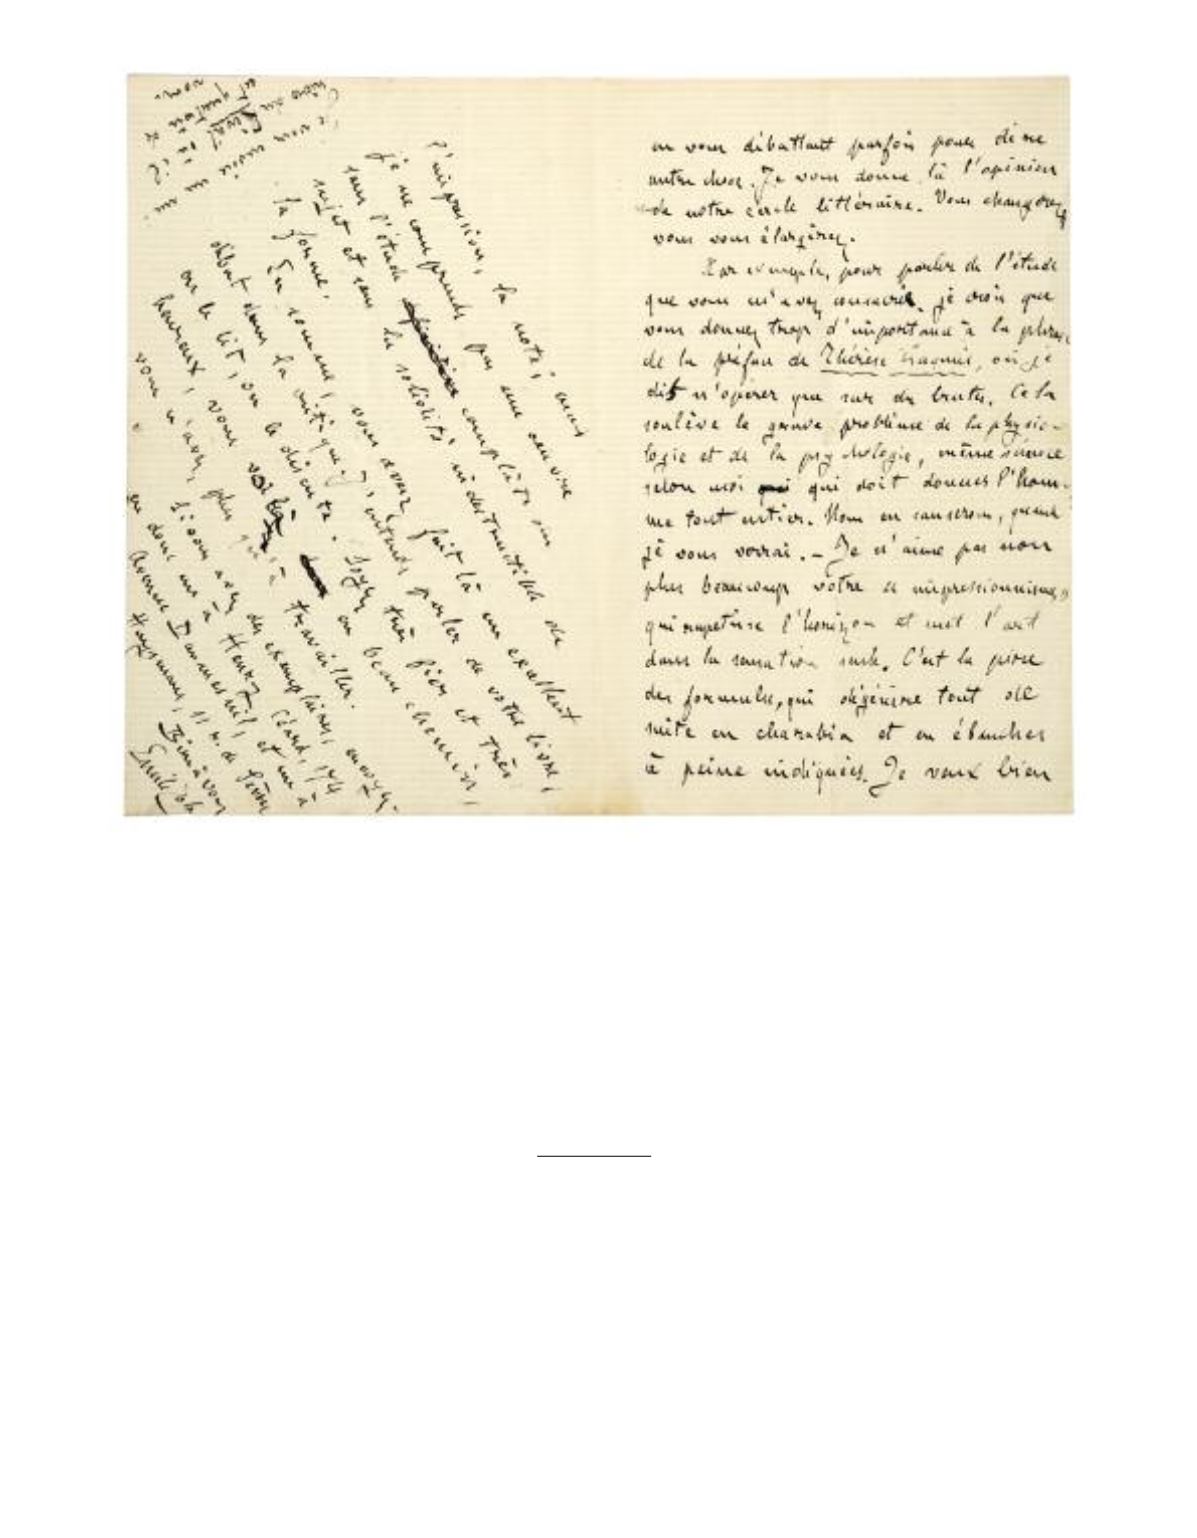 en vous débattant parfois pour dire
autre chose. Je vous donne là l'opinion
de notre cercle littéraire. Vous changerez,
vous vous élargirez.
Par exemple, pour parler de l'étude
que vous m'avez consacrée, je crois que
vous donnez trop d'importance à la phrase
de la préface de Thérèse Raquin, où je
dis n'opérer que sur des brutes. Cela
soulève le grave problème de la physio-
logie et de la psychologie, même science
selon moi qui doit donner l'hom-
me tout entier. Nous en causerons, quand
je vous verrai. – Je n'aime pas non
plus beaucoup votre « impressionnisme »
qui rapetisse l'horizon et met l'art
dans la sensation seule. C'est la pire
des formules, qui dégénère tout de
suite en charabia et en ébauches
à peine indiquées. Je veux bien
l'impression, la note; mais
je ne comprends pas une œuvre
sans l'étude complète du
sujet et sans la solidité indestructible de
la forme.
En somme, vous avez fait là un excellent
début dans la critique. J'entends parler de votre livre,
on le lit, on le discute. Soyez très fier et très
heureux, vous voilà en beau chemin,
vous n'avez plus qu'à travailler.
Si vous avez des exemplaires, envoyez-
en donc un à Henry Céard, 174
et un à
Huysmans, 11 r. de Sèvres
Bien à vous
Emile Zola